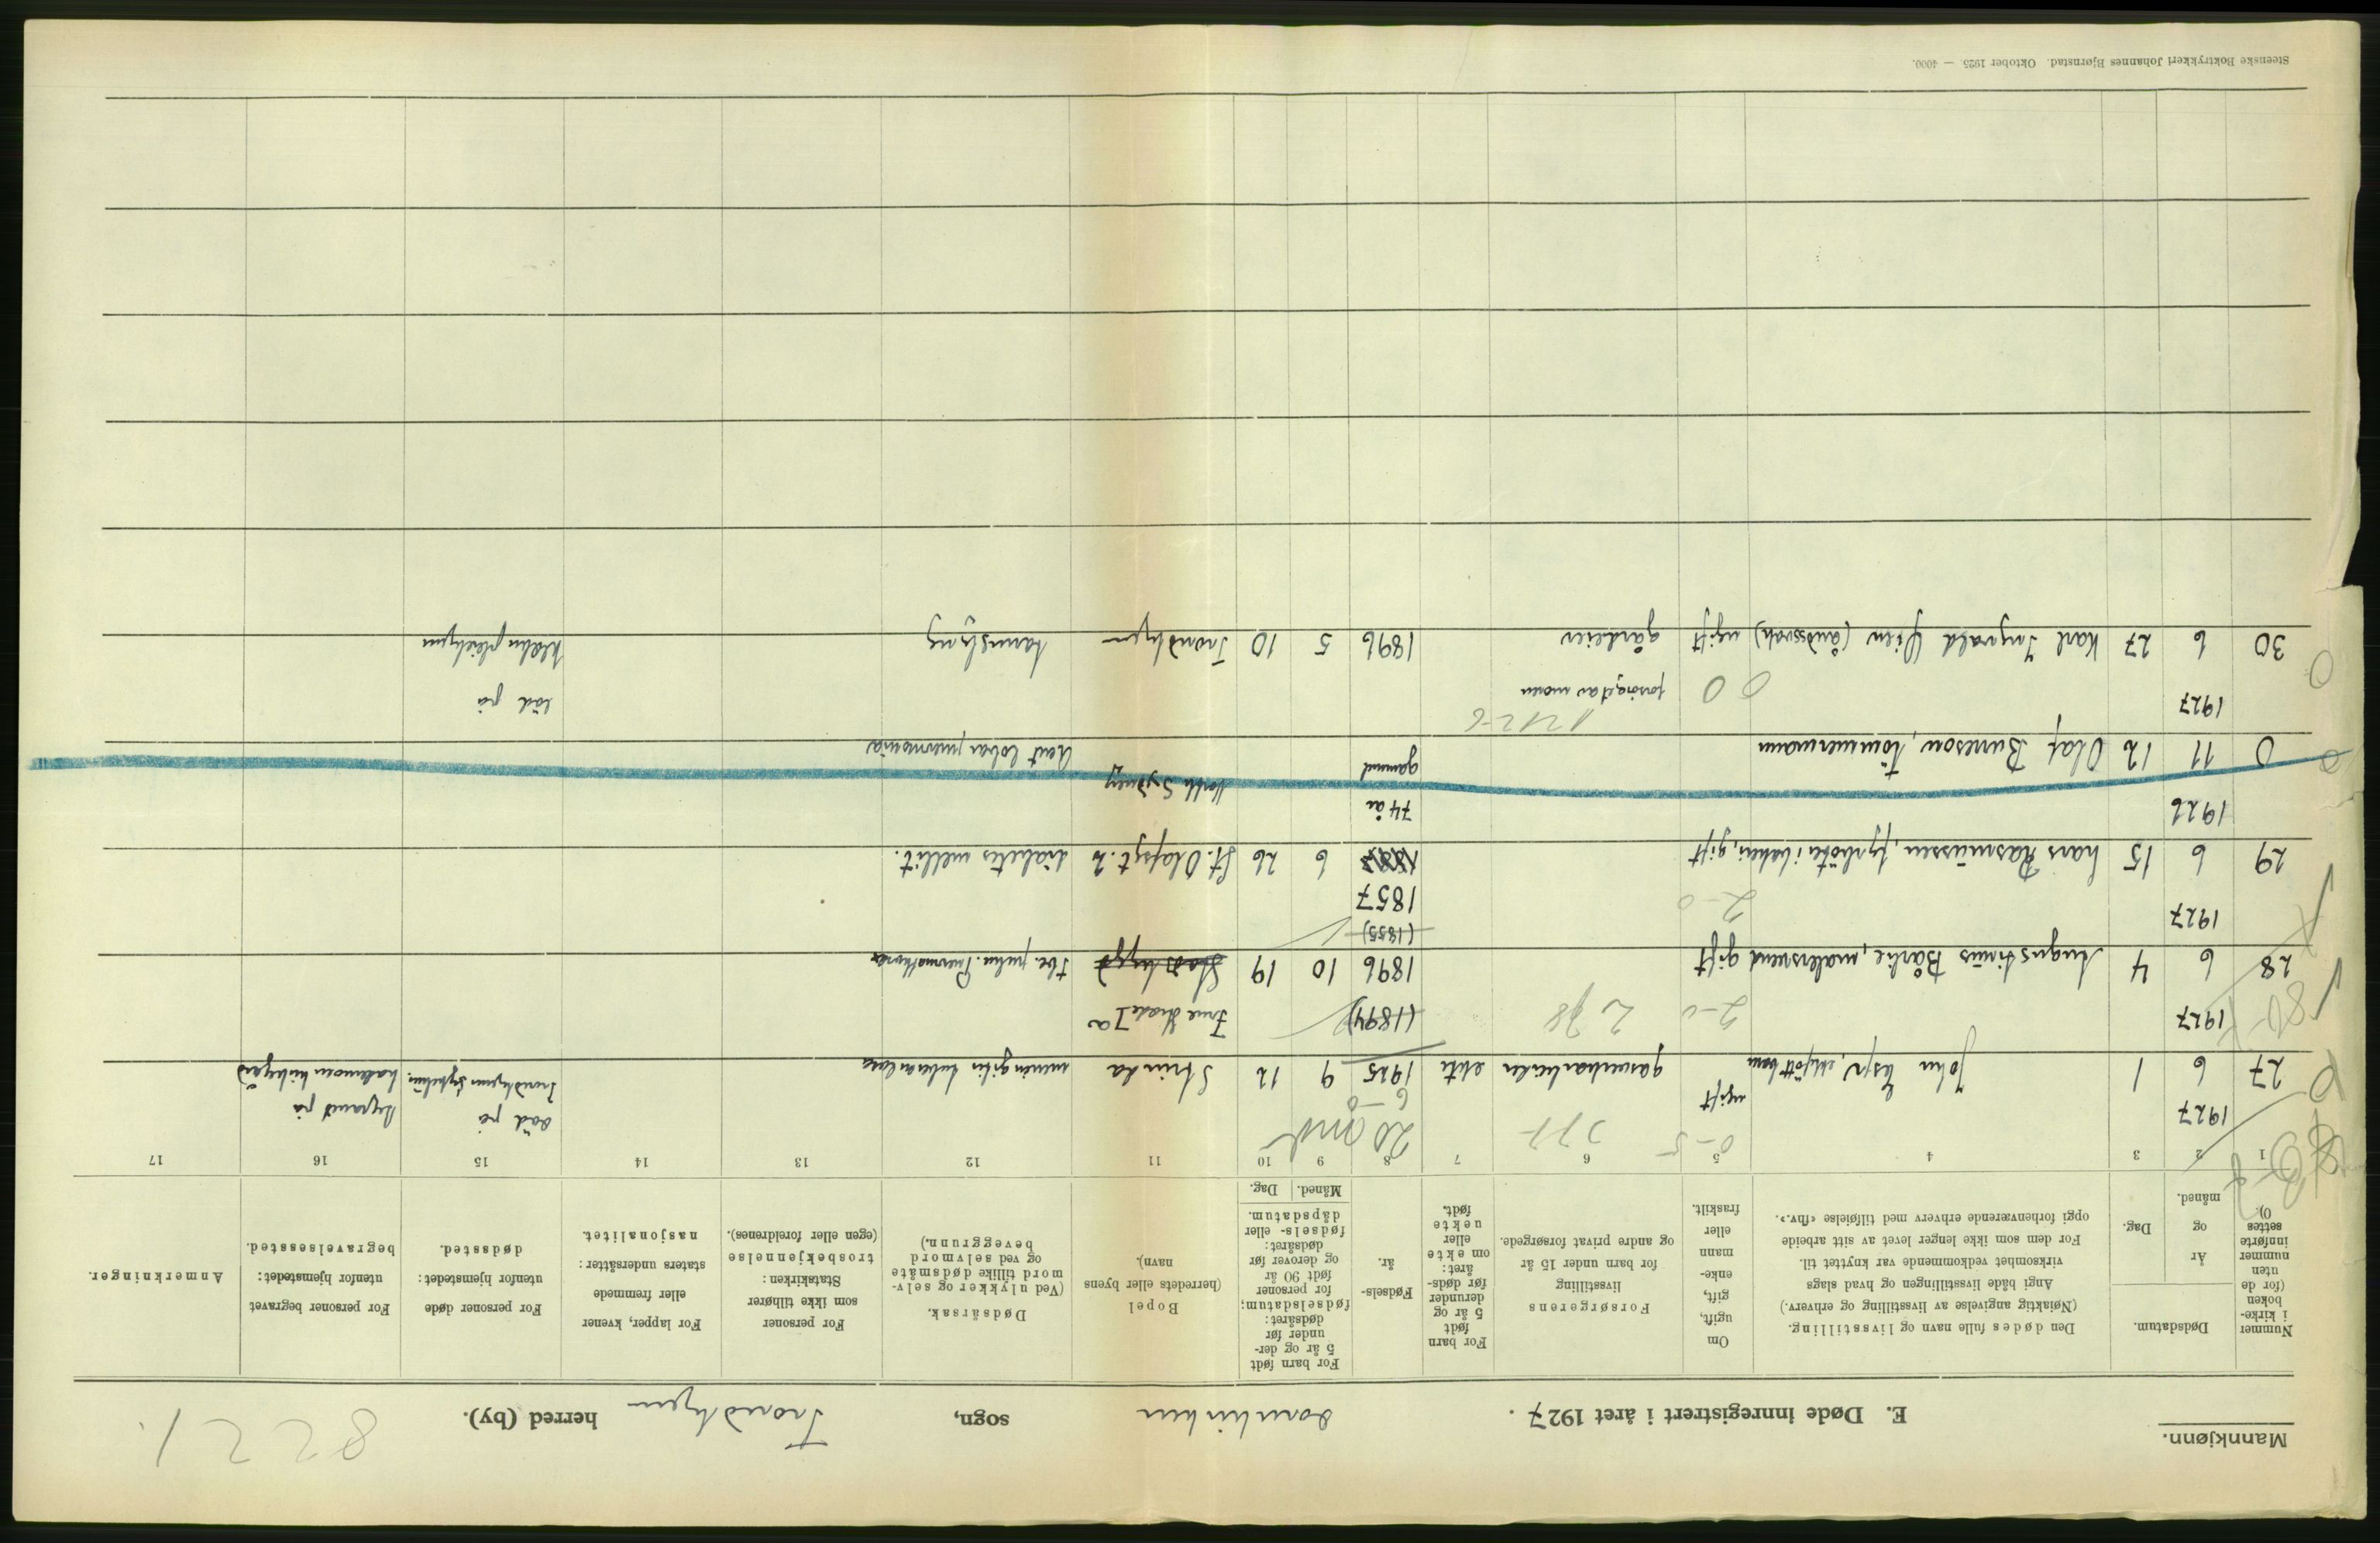 Mannkjønn.
E. Døde innregistrert i året 1927. Domkirken sogn, Trondhjem herred (by). 8221.
Nummer i kirke-boken (for de uten nummer innførte settes 0).
Dødsdatum.
År og måned.
Dag.
Den dødes fulle navn og livsstilling.
(Nøiaktig angivelse av livsstilling og erhverv.)
Angi både livsstillingen og hvad slags
virksomhet vedkommende var knyttet til.
For dem som ikke lenger levet av sitt arbeide
opgi forhenværende erhverv med tilføielse «fhv.».
Om ugift, gift, enke-mann eller fraskilt.
Forsørgerens
livsstilling
for barn under 15 år
og andre privat forsørgede.
For barn født 5 år og derunder før døds-året: om ekte eller uekte født.
Fødsels-år.
For barn født 5 år og der-under før dødsåret: fødselsdatum; for personer født 90 år og derover før dødsåret: fødsels- eller dåpsdatum.
Måned. Dag.
Bopel
(herredets eller byens
navn).
Dødsårsak.
(Ved ulykker og selv-
mord tillike dødsmåte
og ved selvmord
beveggrunn.)
For personer
som ikke tilhører
Statskirken:
trosbekjennelse
(egen eller foreldrenes).
For lapper, kvener
eller fremmede
staters undersåtter:
nasjonalitet.
For personer døde
utenfor hjemstedet:
dødssted.
For personer begravet
utenfor hjemstedet:
begravelsessted.
Anmerkninger.
1 2 3 4 5 6 7 8 9 10 11 12 13 14 15 16 17
1927 ugift 0-5 20 mdr 6-0 Død på Begravet på
27 6 1 John Esp, ektefött barn gassverksarbeider ekte 1925 9 12 Strinda meningitis tuberculosa Trondhjems sykehus
1927 2-0 278 (1894)
28 6 4 Augustinus Bårlie, malersvend gift 1896 10 19 Stadsbygd tbc. pulm. Pneumothorax
1927 2-0 (1855)
1857
29 6 15 Lars Rasmussen, fyrböter i bakeri, gift 1887 6 26 St. Olafsgt. 2 diabetes mellit.
1926 74 år
0 11 12 Olaf Bureson, tömmermann gammel North Sydney Acut lobar pneumonia
1927 0 0 forsörget av moren 1212-6 död på
30 6 27 Karl Ingvald Öien (åndssvak) ugift gårdeier 1896 5 10 Trondhjem Klæbu pleiehjem
Steenske Boktrykkeri Johannes Bjørnstad. Oktober 1925 — 4000.